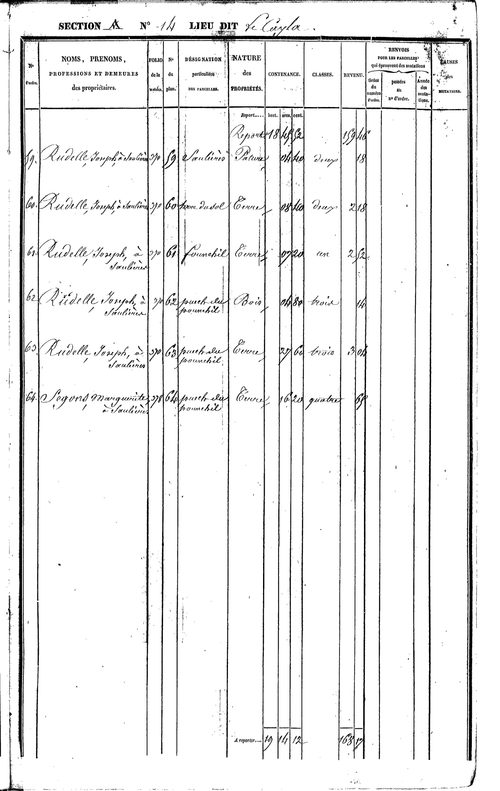 SECTION A N° 14 LIEU DIT Le Cayla.
N° d'ordre. NOMS, PRENOMS, PROFESSIONS ET DEMEURES des propriétaires. FOLIO de la N° du plan. DÉSIGNATION particulière DES PARCELLES. NATURE des PROPRIÉTÉS. CONTENANCE. CLASSES. REVENU. RENVOIS POUR LES PARCELLES qui éprouvent des mutations CAUSES des MUTATIONS.
Report.... hect. ares. cent.
Report 18 45 52 159 46
59. Rudelle, Joseph, à Saulières 370 59 Saulières Pature 04 40 deux 18
60. Rudelle, Joseph, à Saulières 370 60 Terre 08 40 deux 2 18
61. Rudelle, Joseph, à Saulières 370 61 fournehil Terre 07 20 un 2 52
62. Rudelle, Joseph, à Saulières 370 62 puech du fournehil Bois 04 80 trois 14
63. Rudelle, Joseph, à Saulières 370 63 puech du fournehil Terre 27 60 trois 3 04
64. Marguerite, à Saulières 378 64 puech du fournehil Terre 16 20 quatre 65
A reporter... 19 14 12 168 17